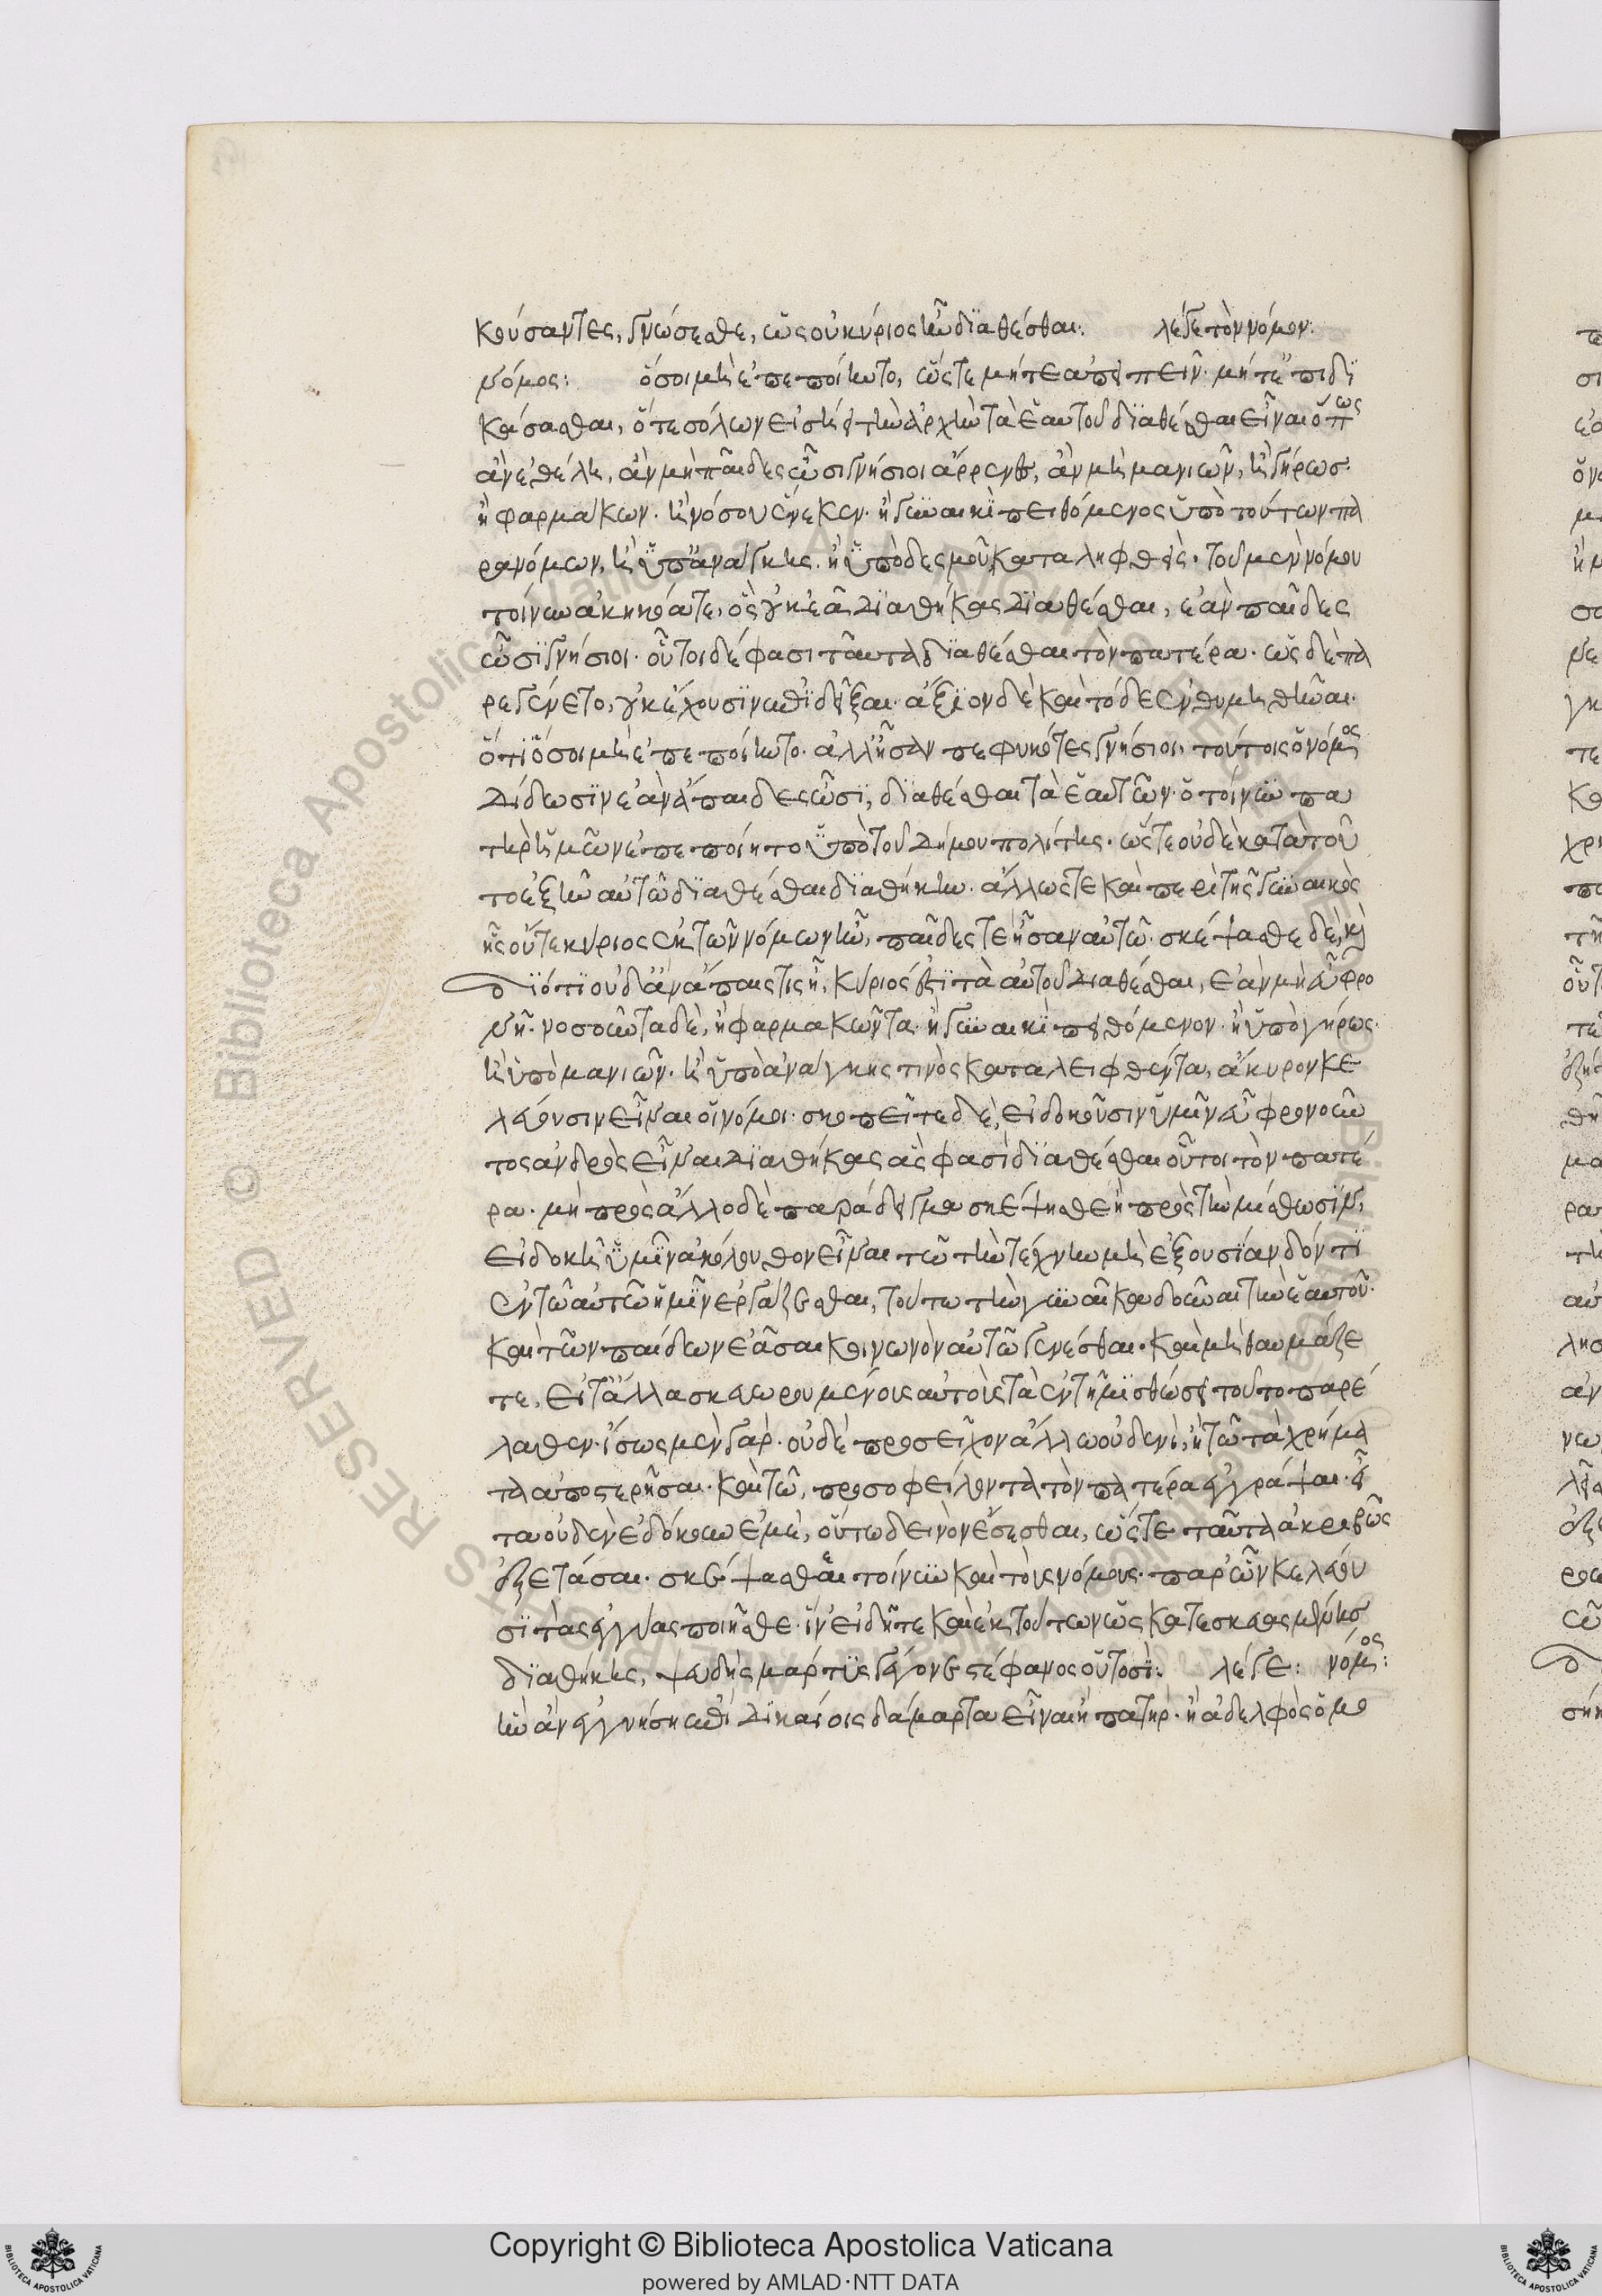 κούσαντες, γνώσεσθε, ὡς οὐ κύριος ἦν διαθέσθαι. λέγε τὸν νόμον.
νόμος: ὅσοι μὴ ἐπεποίηντο, ὥστε μήτε ἀπειπεῖν· μήτ' ἐπιδι
κάσασθαι, ὅτε σόλων εἰσῄει τὴν ἀρχὴν τὰ ἑαυτοῦ διαθέσθαι εἶναι ὅπως
ἂν ἐθέλη, ἂν μὴ παῖδες ὦσι γνήσιοι ἄρρενες, ἂν μὴ μανιῶν, ἢ γήρως·
ἢ φαρμάκων· ἢ νόσου ἕνεκεν· ἢ γυναικὶ πειθόμενος ὑπὸ τούτων πα
ρανόμων, ἢ ὑπ' ἀνάγκης· ἢ ὑπὸ δεσμοῦ καταληφθείς· τοῦ μὲν νόμου
τοίνυν ἀκηκόατε, ὃς οὐκ ἐᾶ διαθήκας διαθέσθαι, ἐὰν παῖδες
ὦσι γνήσιοι· οὗτοι δέ φασι ταῦτα διαθέσθαι τὸν πατέρα· ὡς δὲ πα
ρεγένετο, οὐκ ἔχουσιν ἐπιδεῖξαι· ἄξιον δὲ καὶ τόδε ἐνθυμηθῆναι·
ὅτι ὅσοι μὴ ἐπεποίηντο· ἀλλ' ἦσαν πεφυκότες γνήσιοι, τούτοις ὁ νόμος
δίδωσιν ἐὰν ἄπαιδες ὦσι, διαθέσθαι τὰ ἑαυτῶν· ὁ τοίνυν πα
τὴρ ἡμῶν ἐπεποίητο ὑπὸ τοῦ δήμου πολίτης· ὥστε οὐδὲ κατὰ τοῦ
το ἐξῆν αὐτῶ διαθέσθαι διαθήκην· ἄλλως τε καὶ περὶ τῆς γυναικὸς
ἧς οὔτε κύριος ἐκ τῶν νόμων ἦν, παῖδές τε ἦσαν αὐτῶ· σκέψασθε δὲ, καὶ
διότι οὐδ' ἂν ἄπαις τις ἦ, κύριός ἐστι τὰ αὑτοῦ διαθέσθαι, ἐὰν μὴ εὖ φρο
νῆ· νοσοῦντα δὲ, ἢ φαρμακῶντα· ἢ γυναικὶ πειθόμενον· ἢ ὑπὸ γήρως·
ἢ ὑπὸ μανιῶν· ἢ ὑπὸ ἀνάγκης τινὸς καταλειφθέντα, ἄκυρον κε
λεύουσιν εἶναι οἱ νόμοι· σκοπεῖτε δὲ, εἰ δοκοῦσιν ὑμῖν εὖ φρονοῦν
τος ἀνδρὸς εἶναι διαθήκας ἅς φασι διαθέσθαι οὗτοι τὸν πατέ
ρα· μὴ πρὸς ἄλλο δὲ παράδειγμα σκέψησθε ἢ πρὸς τὴν μίσθωσιν,
εἰ δοκῆ ὑμῖν ἀκόλουθον εἶναι τῶ τὴν τέχνην μὴ ἐξουσίαν δόντι
ἐν τῶ αὐτῶ ἡμῖν ἐργάζεσθαι, τούτω τὴν γυναῖκα δοῦναι τὴν ἑαυτοῦ·
καὶ τῶν παίδων ἐᾶσαι κοινωνὸν αὐτῶ γενέσθαι· καὶ μὴ θαυμάζε
τε, εἰ τἄλλα σκευωρουμένοις αὐτοῖς τὰ ἐν τῆ μισθώσει τοῦτο παρέ
λαθεν· ἴσως μὲν γὰρ· οὐδὲ προσεῖχον ἄλλω οὐδενὶ, ἢ τῶ τὰ χρήμα
τα ἀποστερῆσαι· καὶ τῶ, προσοφείλοντα τὸν πατέρα ἐγγράψαι· εἶ
τα οὐδὲν ἐδόκουν ἐμὲ, οὕτω δεινὸν ἔσεσθαι, ὥστε ταῦτα ἀκριβῶς
ἐξετάσαι· σκέψασθαι τοίνυν καὶ τοὺς νόμους· παρ' ὧν κελεύου
σι τὰς ἐγγύας ποιεῖσθε· ἵν' εἰδῆτε καὶ ἐκ τούτων ὡς κατεσκευασμένης
διαθήκης, ψευδὴς μάρτυς γέγονε στέφανος οὑτοσί. λέγε: νόμος:
ἣν ἂν ἐγγυήση ἐπὶ δικαίοις δάμαρτα εἶναι ἢ πατήρ· ἢ ἀδελφὸς ὁμο
Copyright © Biblioteca Apostolica Vaticana
powered by AMLAD·NTT DATA